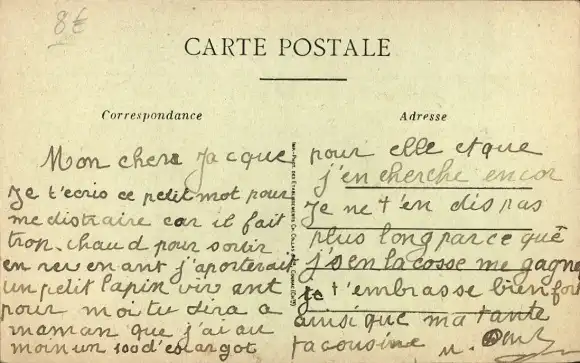 8€
CARTE POSTALE
Correspondance
Adresse
Mon chere Jacque
Je t'ecris ce petit mot pour
me distraire car il fait
trop chaud pour sortir
en revenant j'aporterai
un petit lapin vivant
pour moi tu dira a
maman que j'ai au
moin un 100 d'escargot
pour elle et que
j'en cherche encor
Je ne t'en dis pas
plus long parce que
la cosse me gagne
je t'embrasse bien fort
ainsi que ma tante
ta cousine